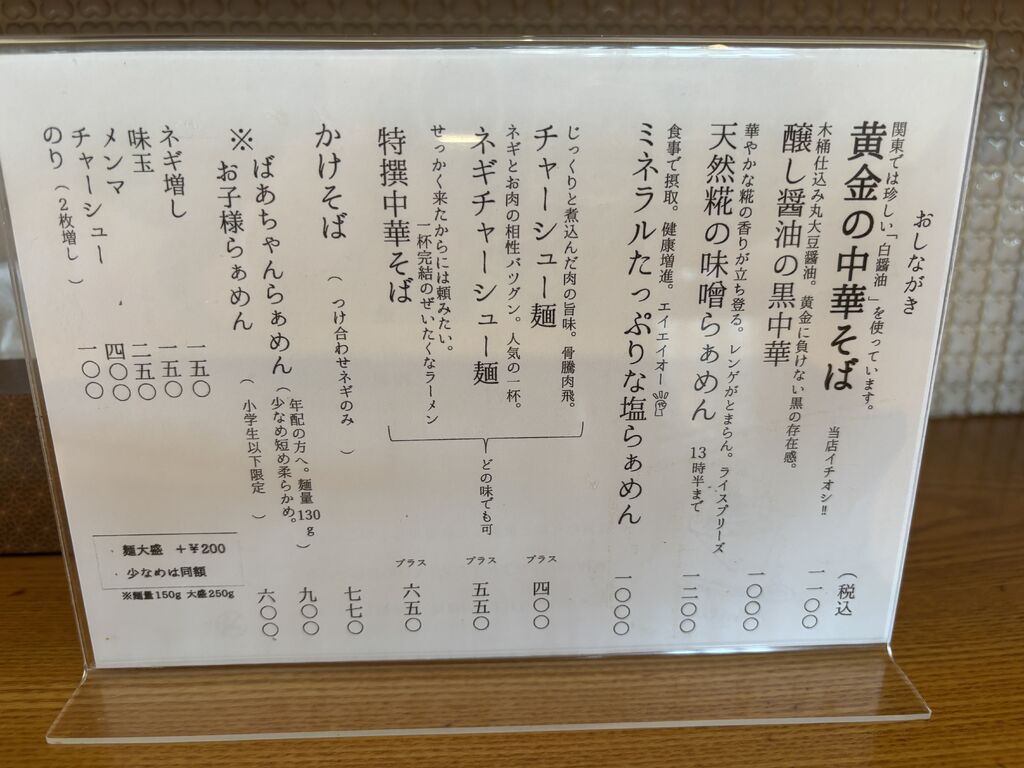 おしながき
(税込
関東では珍しい「白醤油」を使っています。
黄金の中華そば
当店イチオシ!!
一一〇〇
木桶仕込み丸大豆醤油。黄金に負けない黒の存在感。
醸し醤油の黒中華
一〇〇〇
華やかな糀の香りが立ち登る。レンゲがとまらん。ライスプリーズ
天然糀の味噌らぁめん
13時半まで
一二〇〇
食事で摂取。健康増進。エイエイオー
ミネラルたっぷりな塩らぁめん
一〇〇〇
じっくりと煮込んだ肉の旨味。骨騰肉飛。
チャーシュー麺
プラス
四〇〇
ネギとお肉の相性バツグン。人気の一杯。
ネギチャーシュー麺
プラス
五五〇
せっかく来たからには頼みたい。
一杯完結のぜいたくなラーメン
特撰中華そば
プラス
六五〇
どの味でも可
かけそば
(つけ合わせネギのみ)
七七〇
※ばあちゃんらぁめん
(年配の方へ。麺量130g
少なめ短め柔らかめ。)
九〇〇
お子様らぁめん
(小学生以下限定)
六〇〇
ネギ増し
一五〇
味玉
一五〇
メンマ
二五〇
チャーシュー
四〇〇
のり(2枚増し)
一〇〇
・麺大盛 +¥200
・少なめは同額
※麺量150g 大盛250g